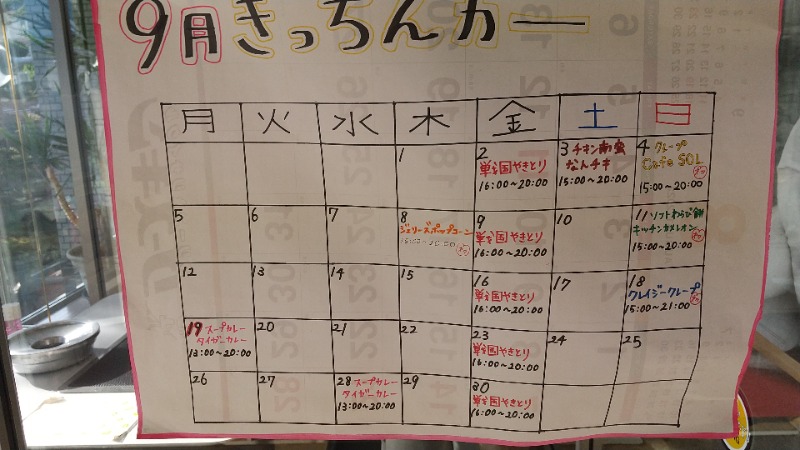 9月きっちんカー
月 火 水 木 金 土 日
1 2 3 チキン南蛮 4 クレープ
戦国やきとり なんチキ Cafe SOL
16:00~20:00 15:00~20:00 15:00~20:00
5 6 7 8 9 10 11 ソフトわらび餅
ジェリーズポップコーン 戦国やきとり キッチンカメレオン
16:00~20:00 15:00~20:00
12 13 14 15 16 17 18
戦国やきとり クレイジークレープ
16:00~20:00 15:00~21:00
19 スープカレー 20 21 22 23 24 25
タイガーカレー 戦国やきとり
13:00~20:00 16:00~20:00
26 27 28 スープカレー 29 30
タイガーカレー 戦国やきとり
13:00~20:00 16:00~20:00